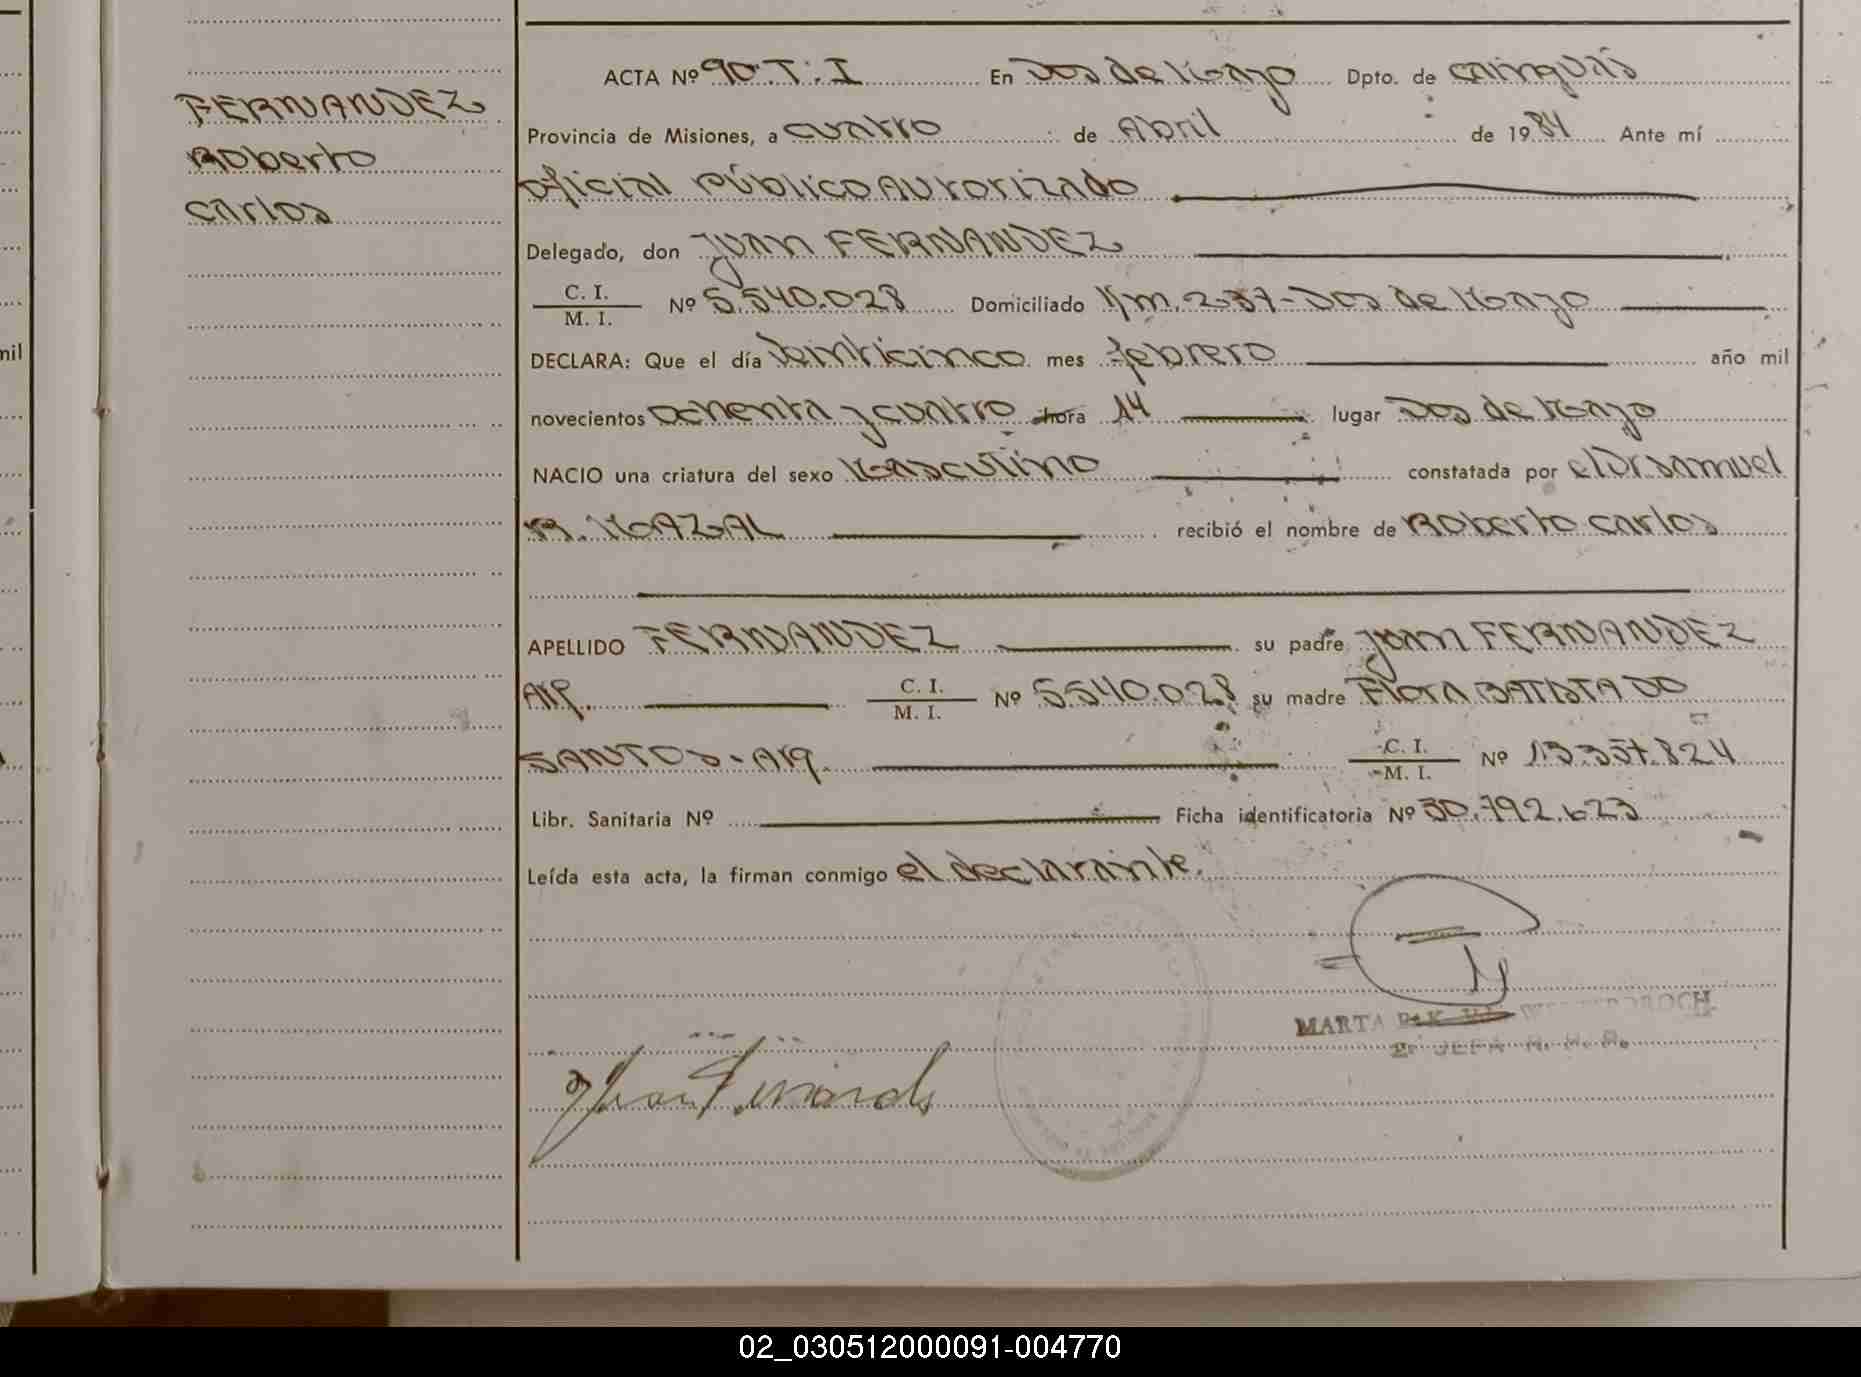 FERNANDEZ
Roberto
Carlos
ACTA Nº 90.T.I En Dos de Mayo Dpto. de Cainguás
Provincia de Misiones, a cuatro de Abril de 1984 Ante mí
oficial público Autorizado
Delegado, don Juan FERNANDEZ
C. I.
M. I. Nº 5.540.028 Domiciliado Km. 237-Dos de Mayo
DECLARA: Que el día Veinticinco mes febrero año mil
novecientos ochenta y cuatro hora 14 lugar Dos de Mayo
NACIO una criatura del sexo Masculino constatada por el Dr. Samuel
R. MAZAL recibió el nombre de Roberto Carlos
APELLIDO FERNANDEZ su padre Juan FERNANDEZ
Arg. C. I.
M. I. Nº 5.540.028 su madre Flora BATISTA DO
SANTOS-Arg. C. I.
M. I. Nº 13.357.824
Libr. Sanitaria Nº Ficha identificatoria Nº 30.792.623
Leída esta acta, la firman conmigo el declarante.
MARTA
2ª JEFA R. P. P.
mil
02_030512000091-004770